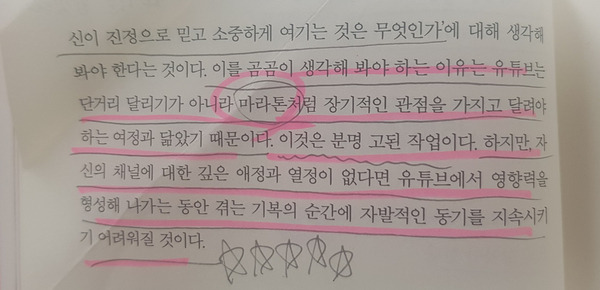 신이 진정으로 믿고 소중하게 여기는 것은 무엇인가'에 대해 생각해
봐야 한다는 것이다. 이를 곰곰이 생각해 봐야 하는 이유는 유튜브는
단거리 달리기가 아니라 마라톤처럼 장기적인 관점을 가지고 달려야
하는 여정과 닮았기 때문이다. 이것은 분명 고된 작업이다. 하지만, 자
신의 채널에 대한 깊은 애정과 열정이 없다면 유튜브에서 영향력을
형성해 나가는 동안 겪는 기복의 순간에 자발적인 동기를 지속시키
기 어려워질 것이다.